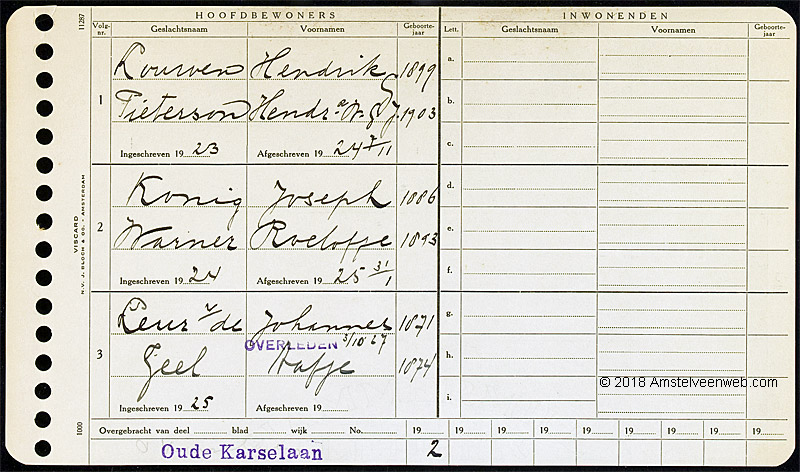 HOOFDBEWONERS INWONENDEN
11287 Volg-nr. Geslachtsnaam Voornamen Geboorte-jaar Lett. Geslachtsnaam Voornamen Geboorte-jaar
Louwen Hendrik 1899 a.
1 Pieterson Hendr.a W. J. 1903 b.
c.
Ingeschreven 19 23 Afgeschreven 19 24 7/11
Konig Joseph 1886 d.
2 Warner Roeloffje 1893 e.
f.
Ingeschreven 19 24 Afgeschreven 19 25 31/1
VISCARD
N.V. J. BLOCH & CO. - AMSTERDAM
Leur v/de Johannes 1871 g.
OVERLEDEN 3/10 27
3 Geel 1874 h.
© 2018 Amstelveenweb.com
Ingeschreven 19 25 Afgeschreven 19 i.
1000 Overgebracht van deel blad wijk No. 19 19 19 19 19 19 19 19 19
Oude Karselaan 2